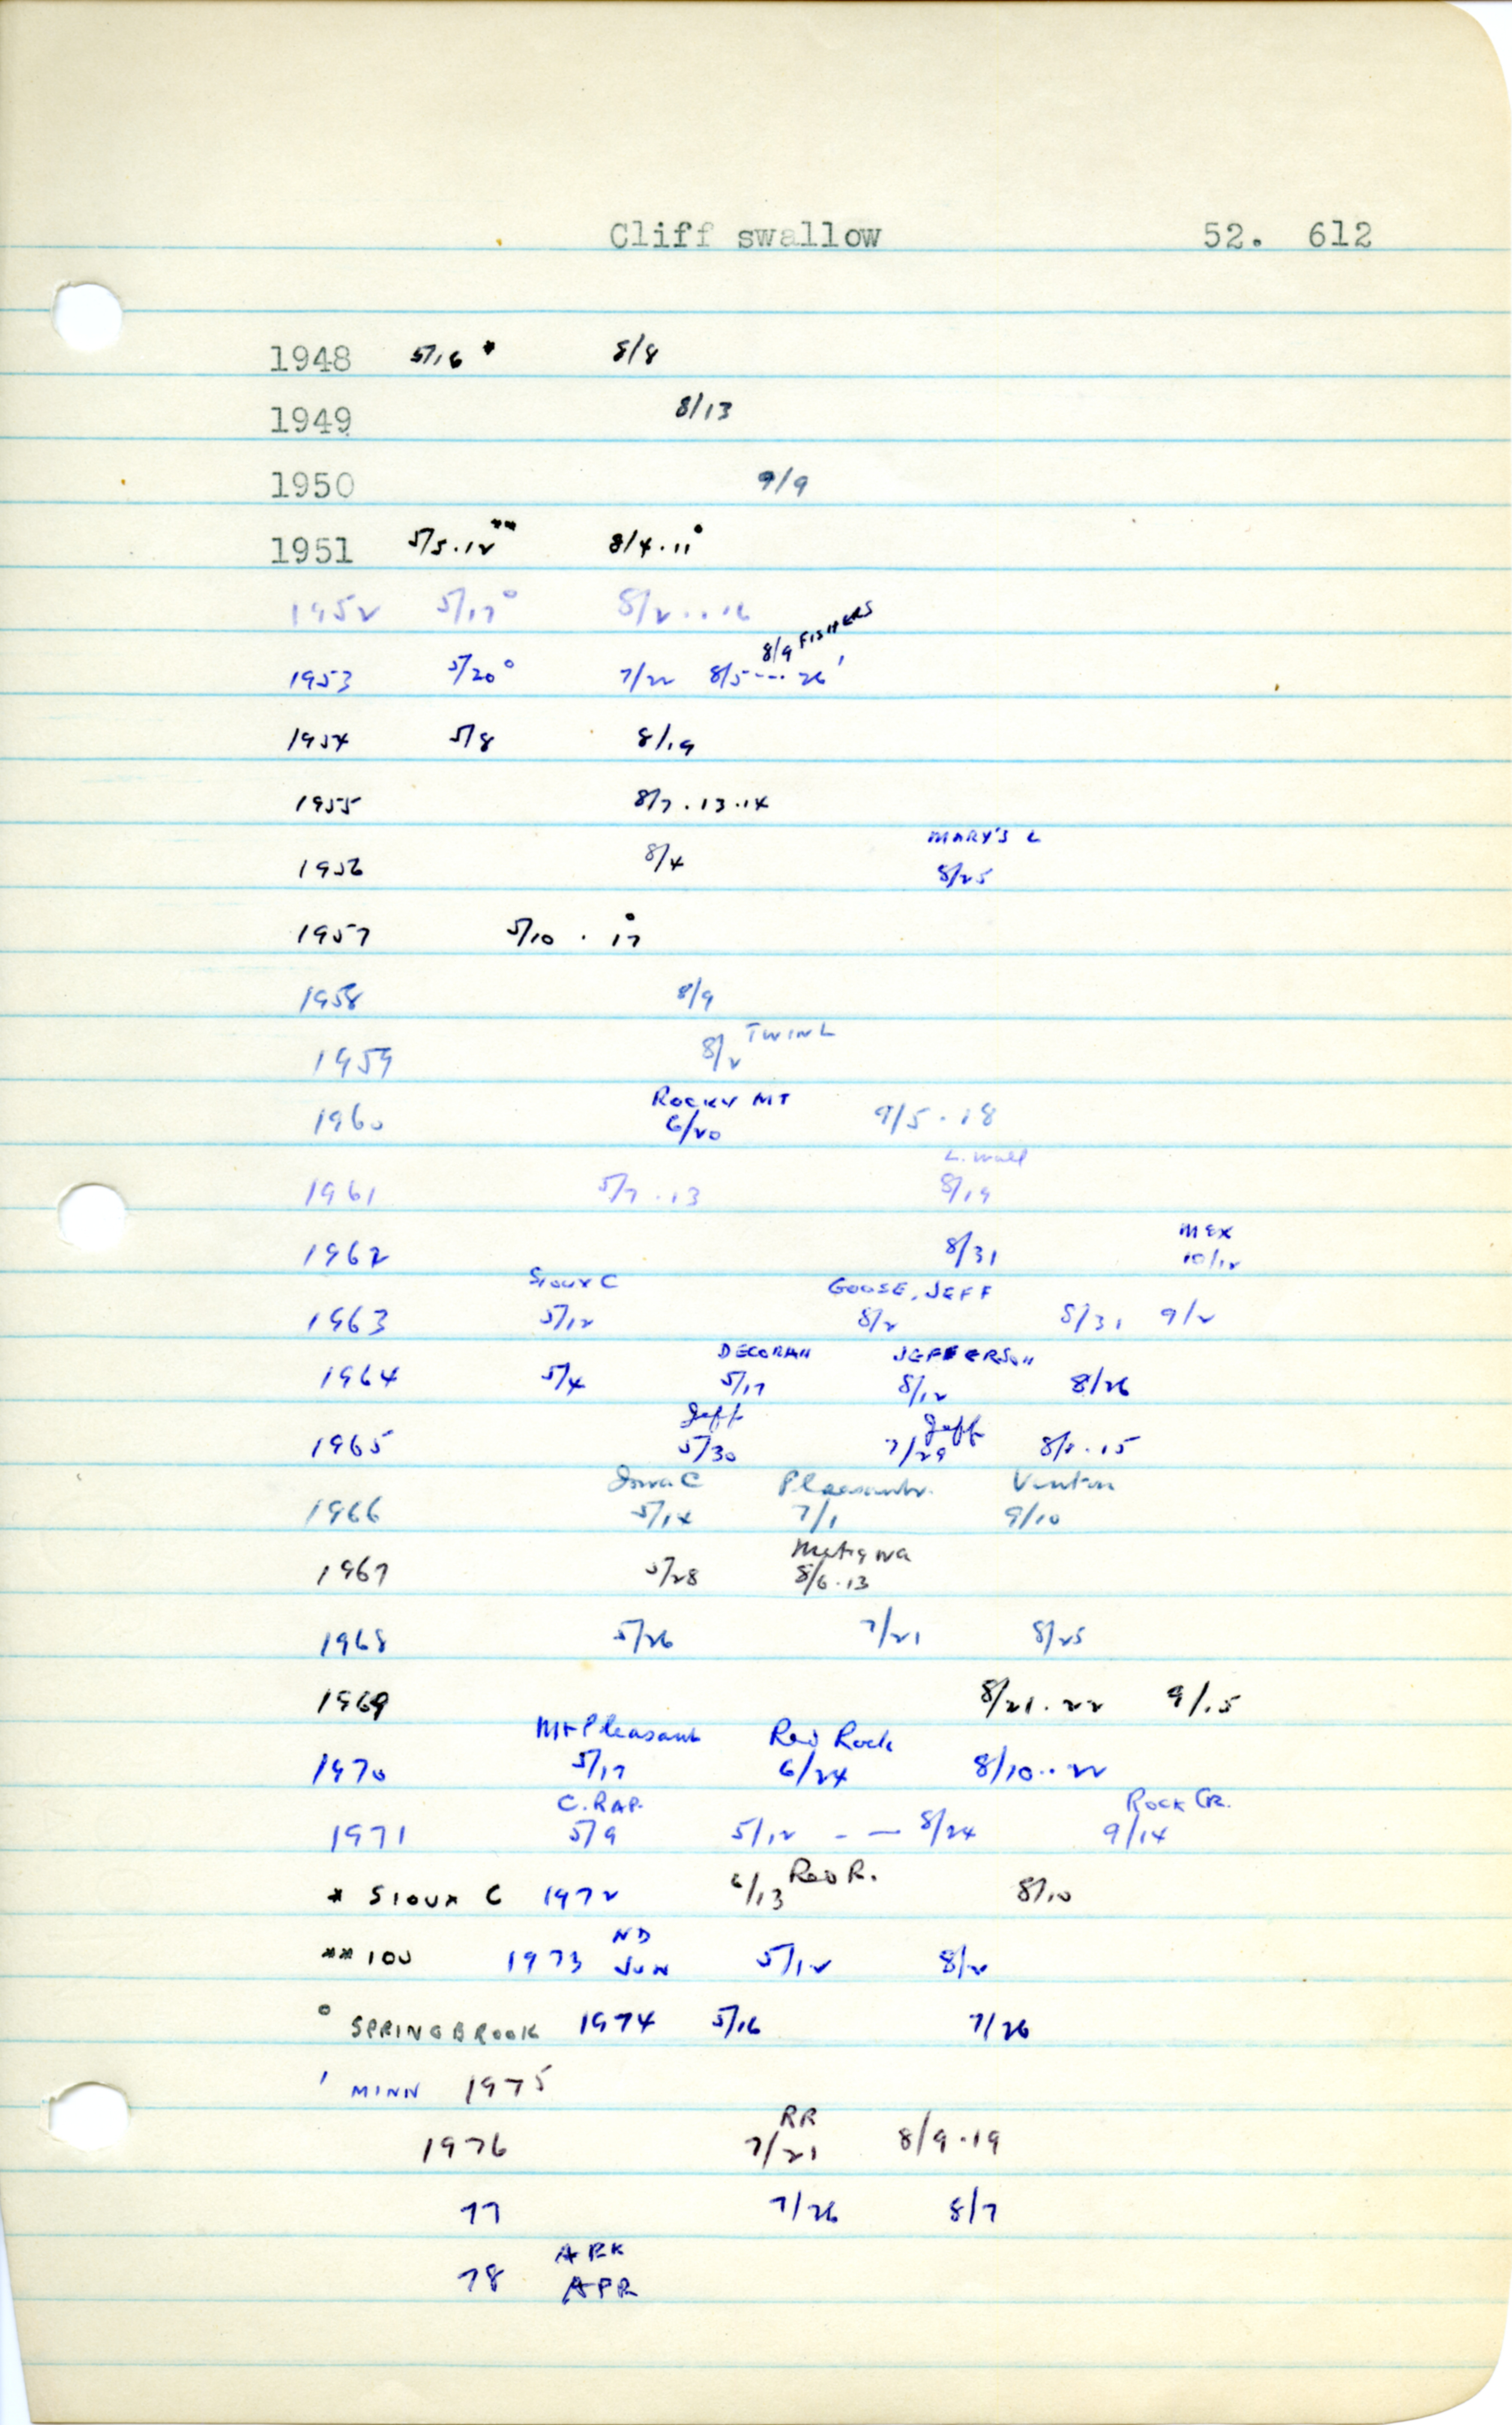 Cliff swallow 52. 612
1948 5/16 * 8/8
1949 8/13
1950 9/9
1951 5/5.12 ** 8/4.11 °
1952 5/17 ° 8/2..16
8/9 FISHERS
1953 5/20 ° 7/22 8/5--..26 '
1954 5/8 8/19
1955 8/7.13.14
MARY'S L
1956 8/4 8/25
1957 5/10 . 17 °
1958 8/9
TWIN L
1959 8/2
ROCKY MT
1960 6/20 9/5.18
L. Wall
1961 5/7.13 8/19
MEX
1962 8/31 10/12
SIOUX C GOOSE, JEFF
1963 5/12 8/2 8/31 9/2
DECORAH JEFFERSON
1964 5/4 5/17 8/12 8/26
Jeff Jeff
1965 5/30 7/29 8/8.15
Iowa C Pleasantv. Venton
1966 5/14 7/1 9/10
1967 5/28 8/6.13
1968 5/26 7/21 8/25
1969 8/21.22 9/15
Mt Pleasant Red Rock
1970 5/17 6/24 8/10..22
C. RAP. ROCK CR.
1971 5/9 5/12 - — 8/24 9/14
* SIOUX C 1972 6/13 Red R. 8/10
ND
** 100 1973 JUN 5/12 8/2
° SPRINGBROOK 1974 5/16 7/26
' MINN 1975
RR
1976 7/21 8/9.19
77 7/26 8/7
ARK
78 APR